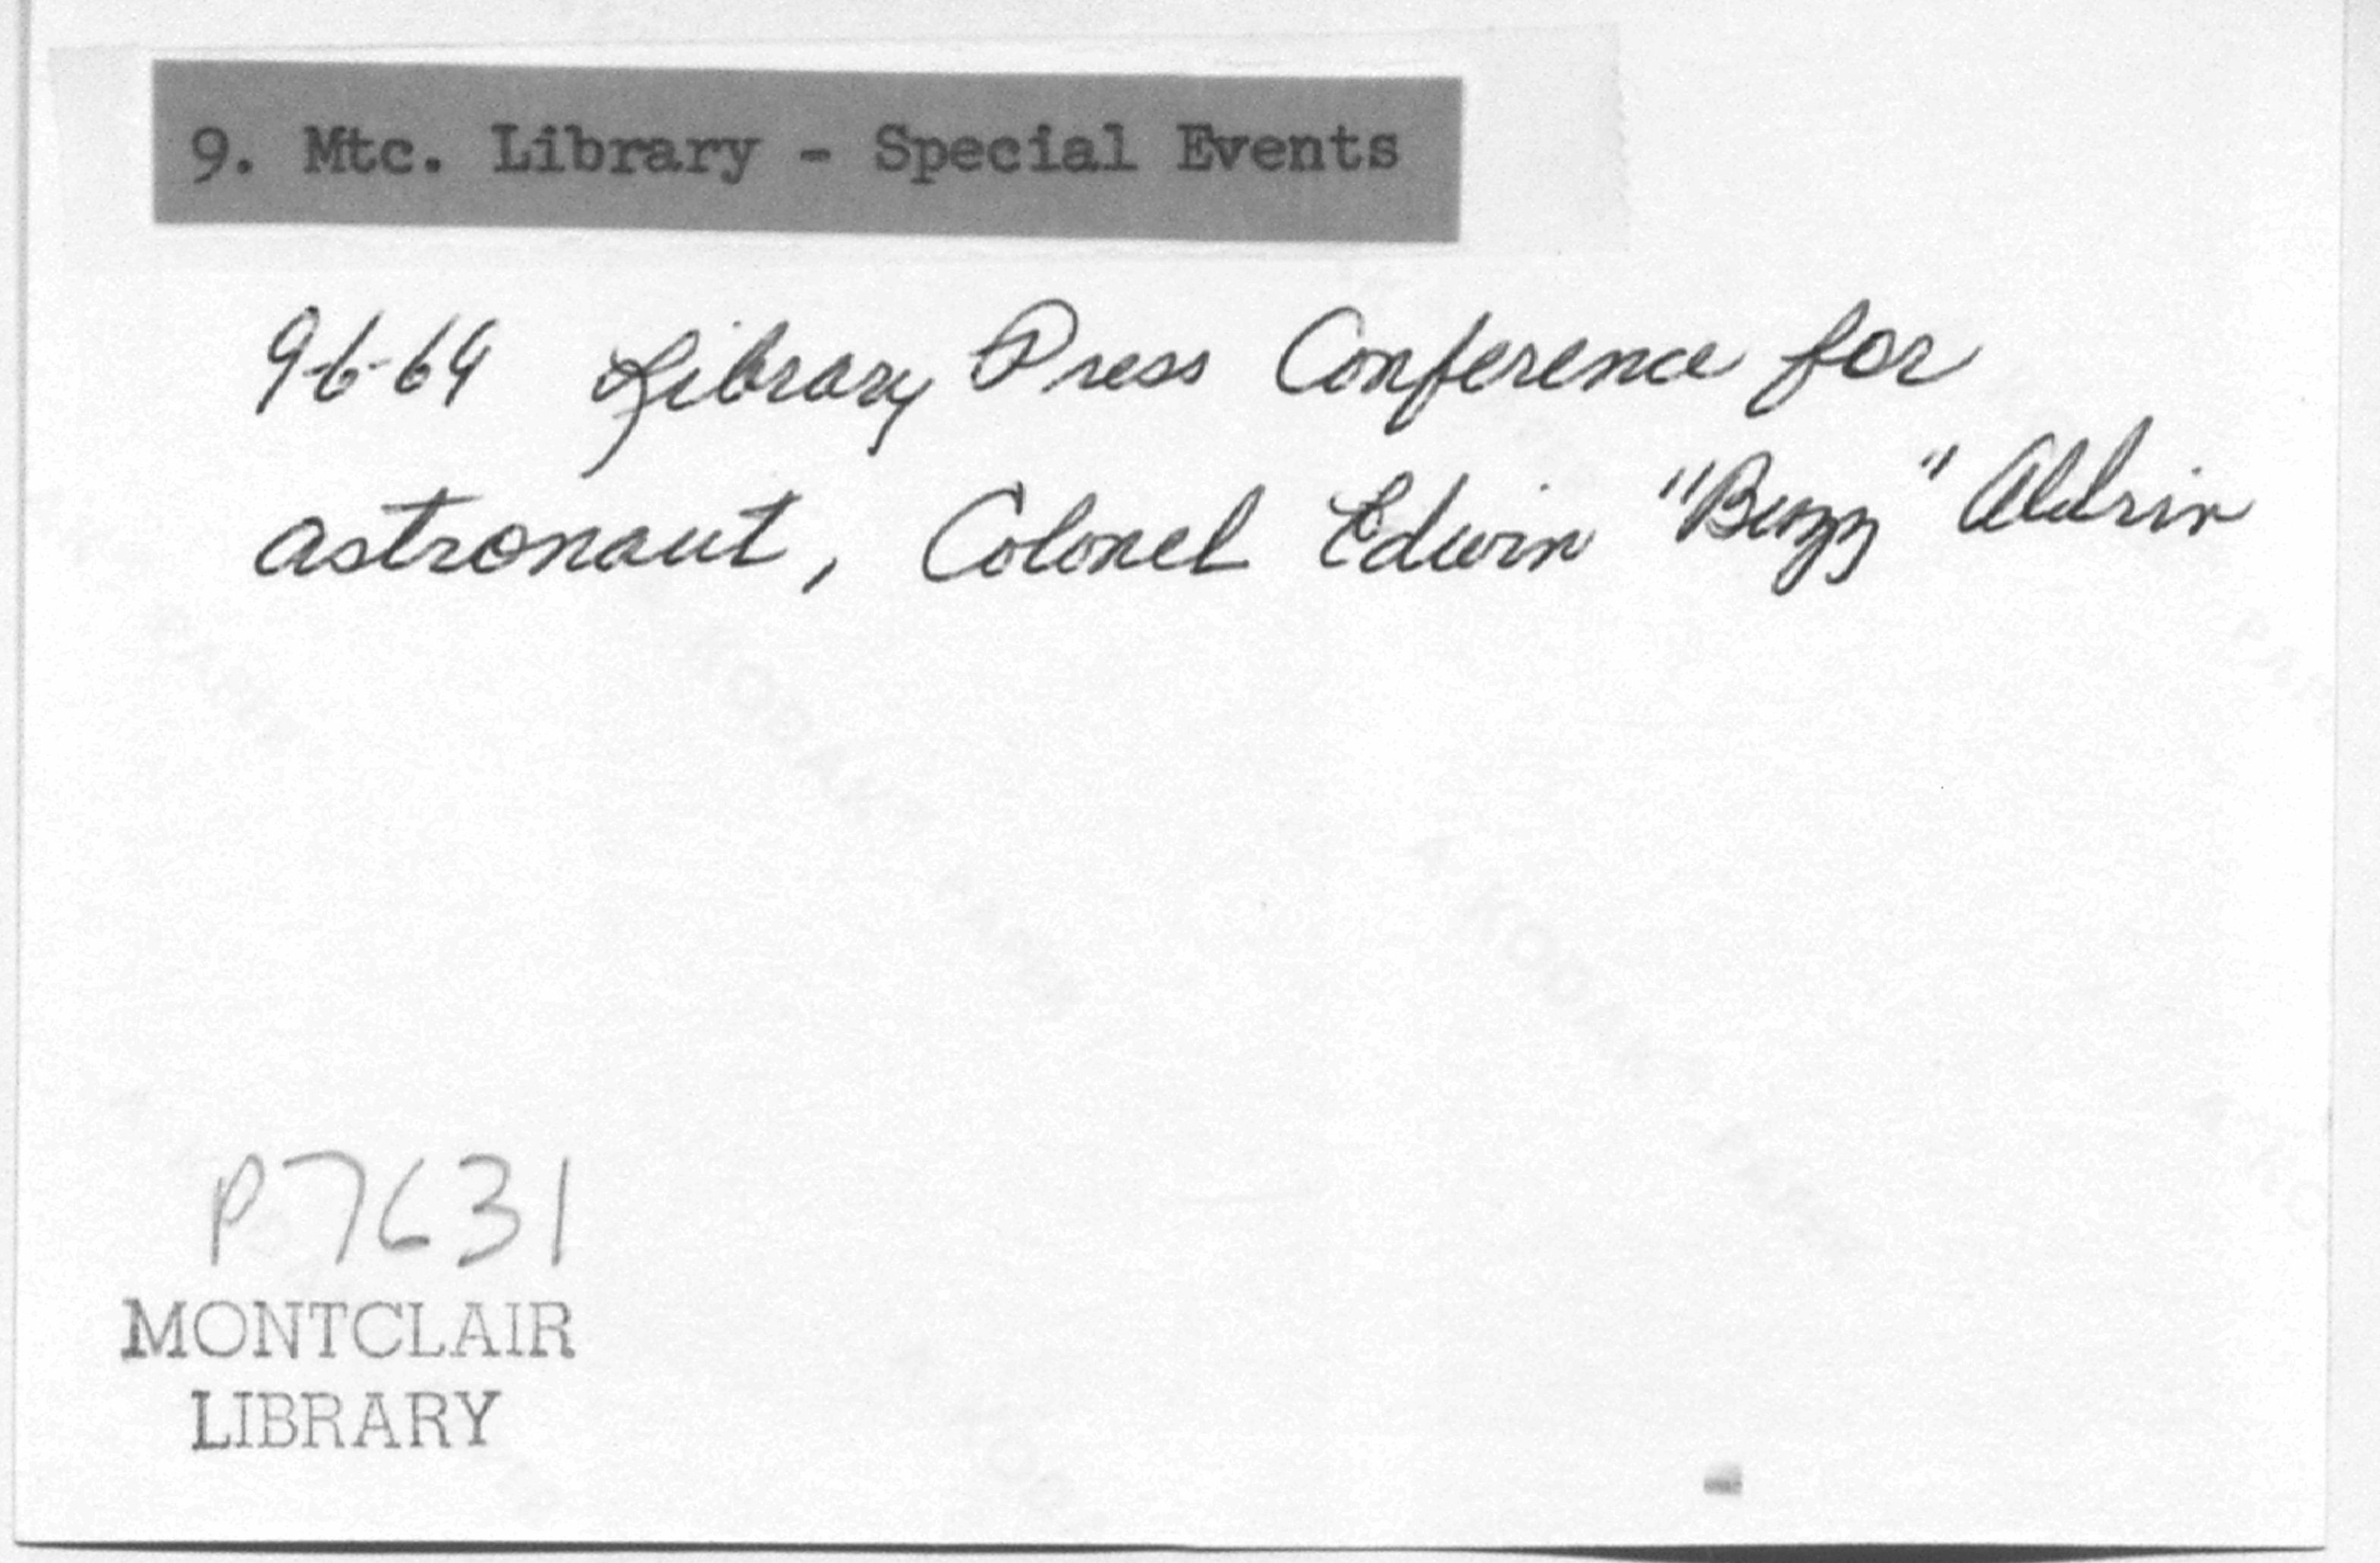 9. Mtc. Library - Special Events
9-6-69 Library Press Conference for
astronaut, Colonel Edwin "Buzz" Aldrin
P7631
MONTCLAIR
LIBRARY